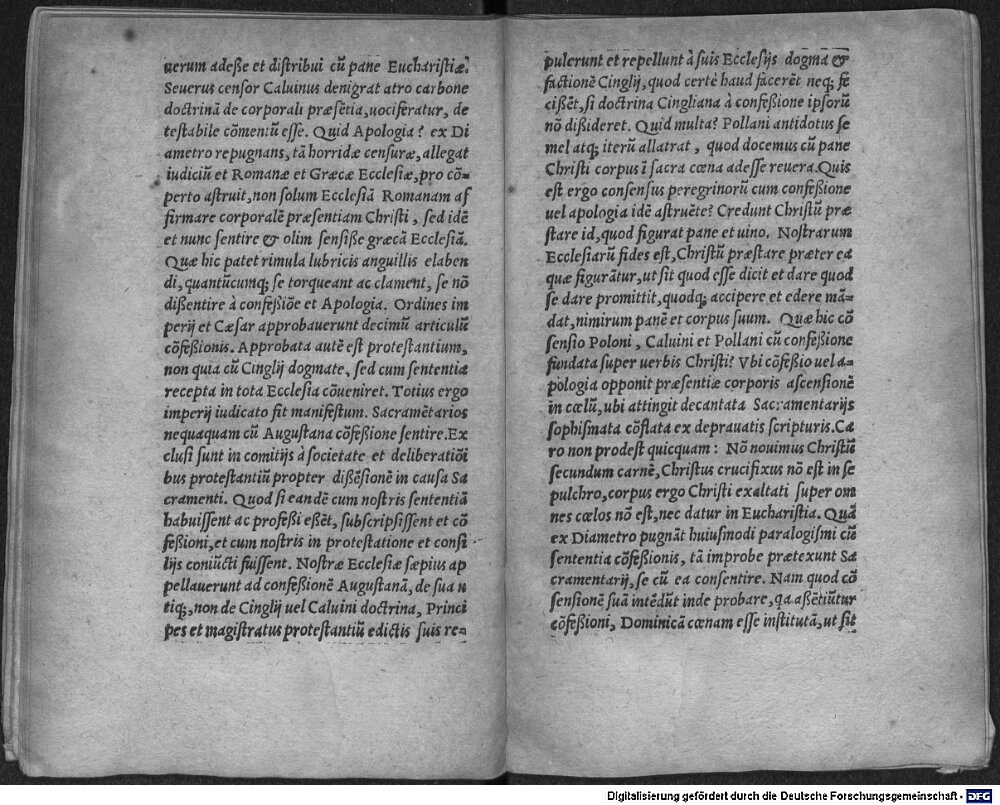 uerum adeße et distribui cū pane Eucharistiæ.
Seuerus censor Caluinus denigrat atro carbone
doctrinā de corporali præsētia, uociferatur, de
testabile cōmentū esse. Quid Apologia? ex Di
ametro repugnans, tā horridæ censuræ, allegat
iudiciū et Romanæ et Græcæ Ecclesiæ, pro cō-
perto astruit, non solum Ecclesiā Romanam af
firmare corporalē præsentiam Christi, sed idē
et nunc sentire & olim sensiße græcā Ecclesiā.
Quæ hic patet rimula lubricis anguillis elaben
di, quantūcumq; se torqueant ac clament, se nō
dißentire à confeßiōe et Apologia. Ordines im
perij et Cæsar approbauerunt decimū articulū
cōfeßionis. Approbata autē est protestantium,
non quia cū Cinglij dogmate, sed cum sententia
recepta in tota Ecclesia cōueniret. Totius ergo
imperij iudicato fit manifestum. Sacramētarios
nequaquam cū Augustana cōfeßione sentire. Ex
clusi sunt in comitijs à societate et deliberatiōi
bus protestantiū propter dißēsionē in causa Sa
cramenti. Quod si eandē cum nostris sententiā
habuissent ac profeßi eßēt, subscripsissent et cō
feßioni, et cum nostris in protestatione et consi
lijs coniūcti fuissent. Nostræ Ecclesiæ sæpius ap
pellauerunt ad confeßionē Augustanā, de sua u
tiq;, non de Cinglij uel Caluini doctrina, Princi
pes et magistratus protestantiū edictis suis re-
pulerunt et repellunt à suis Ecclesijs dogma &
factionē Cinglij, quod certè haud facerēt neq; fe
cißēt, si doctrina Cingliana à confeßione ipsorū
nō dißideret. Quid multa? Pollani antidotus se
mel atq; iterū allatrat, quod docemus cū pane
Christi corpus ī sacra cœna adesse reuera. Quis
est ergo consensus peregrinorū cum confeßione
uel apologia idē astruēte? Credunt Christū præ
stare id, quod figurat pane et uino. Nostrarum
Ecclesiarū fides est, Christū præstare præter ea
quæ figurātur, ut sit quod esse dicit et dare quod
se dare promittit, quodq; accipere et edere mā-
dat, nimirum panē et corpus suum. Quæ hic cō
sensio Poloni, Caluini et Pollani cū confeßione
fundata super uerbis Christi? Vbi cōfeßio uel a-
pologia opponit præsentiæ corporis ascensionē
in cœlū, ubi attingit decantata Sacramentarijs
sophismata cōflata ex deprauatis scripturis. Ca
ro non prodest quicquam: Nō nouimus Christū
secundum carnē, Christus crucifixus nō est in se
pulchro, corpus ergo Christi exaltati super om
nes cœlos nō est, nec datur in Eucharistia. Quā
ex Diametro pugnāt huiusmodi paralogismi cū
sententia cōfeßionis, tā improbe prætexunt Sa
cramentarij, se cū ea consentire. Nam quod cō
sensionē suā intēdūt inde probare, qa aßētiūtur
cōfeßioni, Dominicā cœnam esse institutā, ut sit
Digitalisierung gefördert durch die Deutsche Forschungsgemeinschaft - DFG